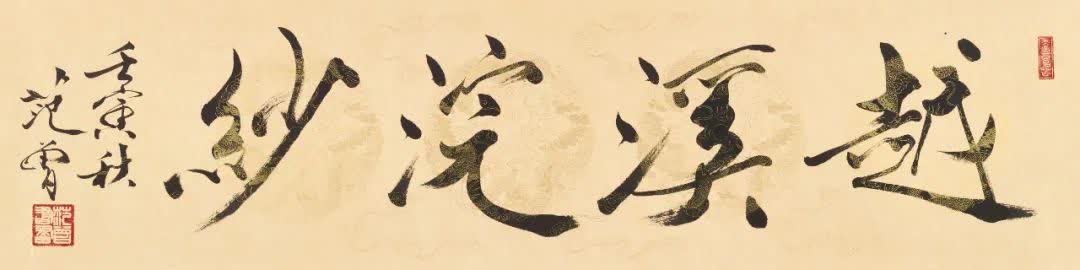 越溪浣紗
壬寅秋
范曾